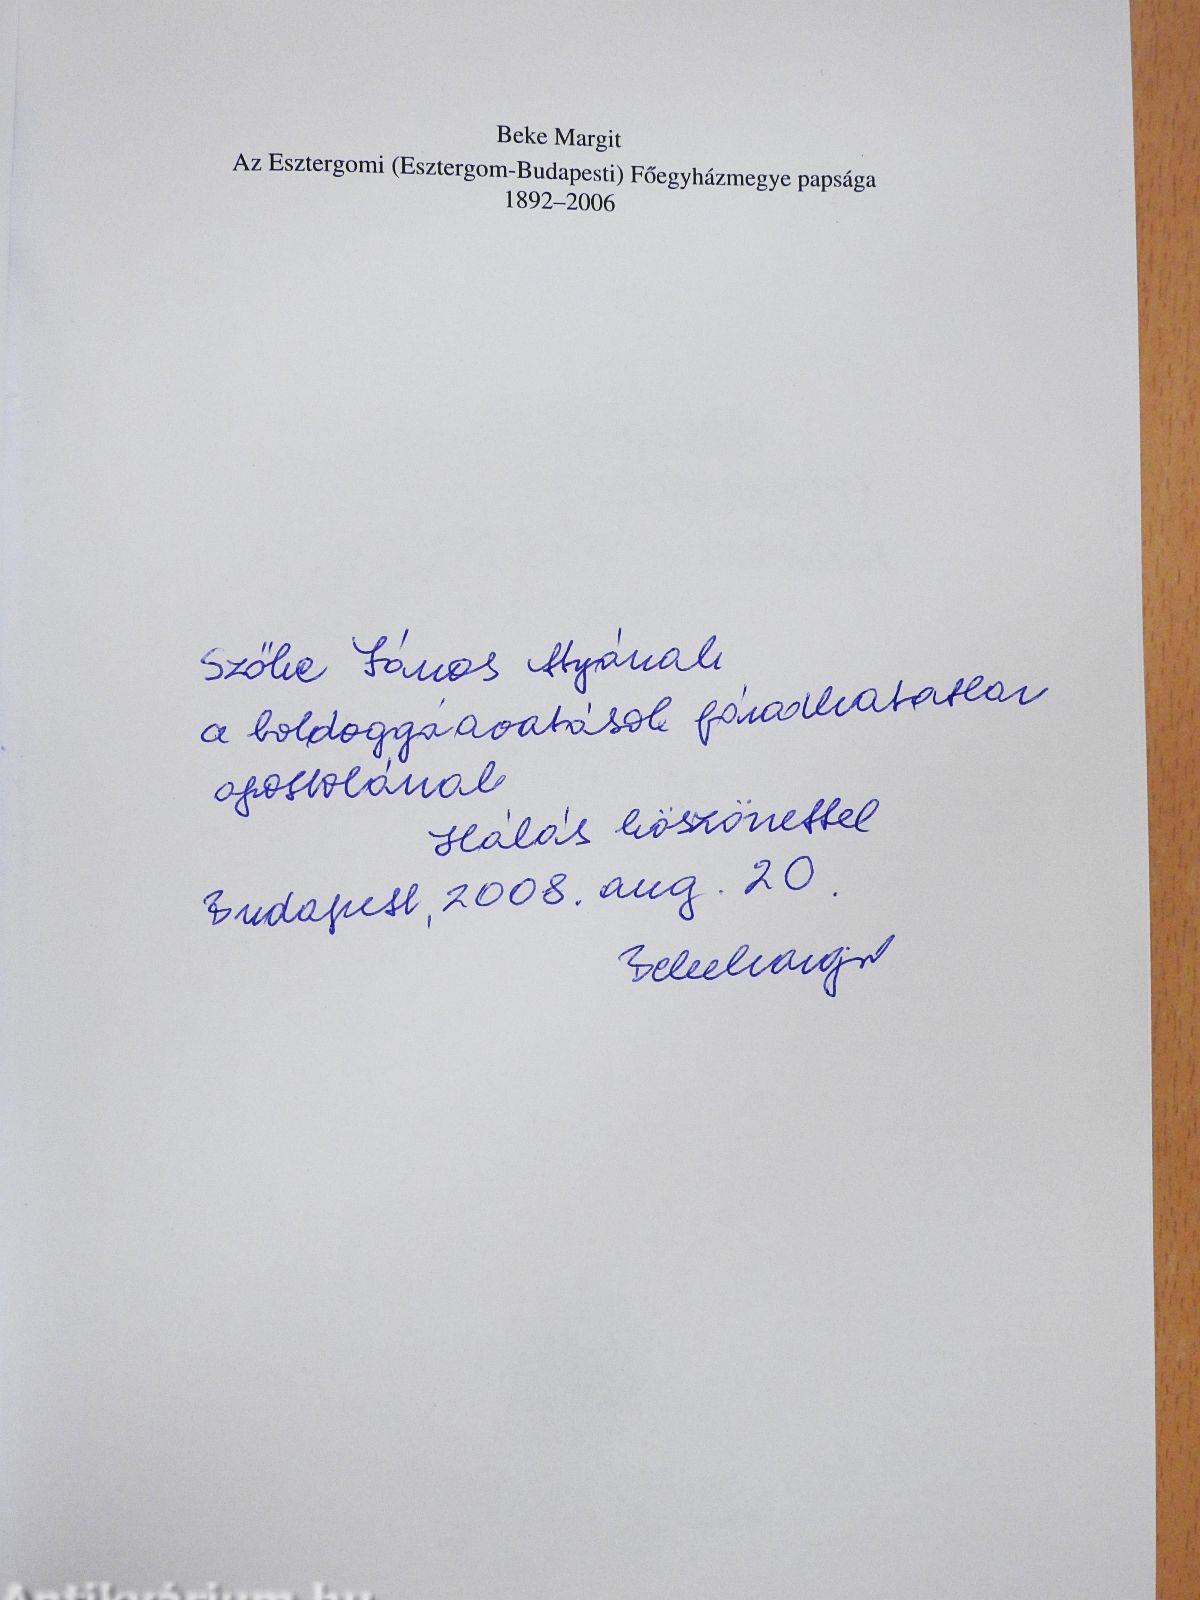 Beke Margit
Az Esztergomi (Esztergom-Budapesti) Főegyházmegye papsága
1892–2006
Szőke János Atyának
a boldoggáavatások fáradhatatlan
apostolának
Hálás köszönettel
Budapest, 2008. aug. 20.
Beke Margit
Antikvárium.hu